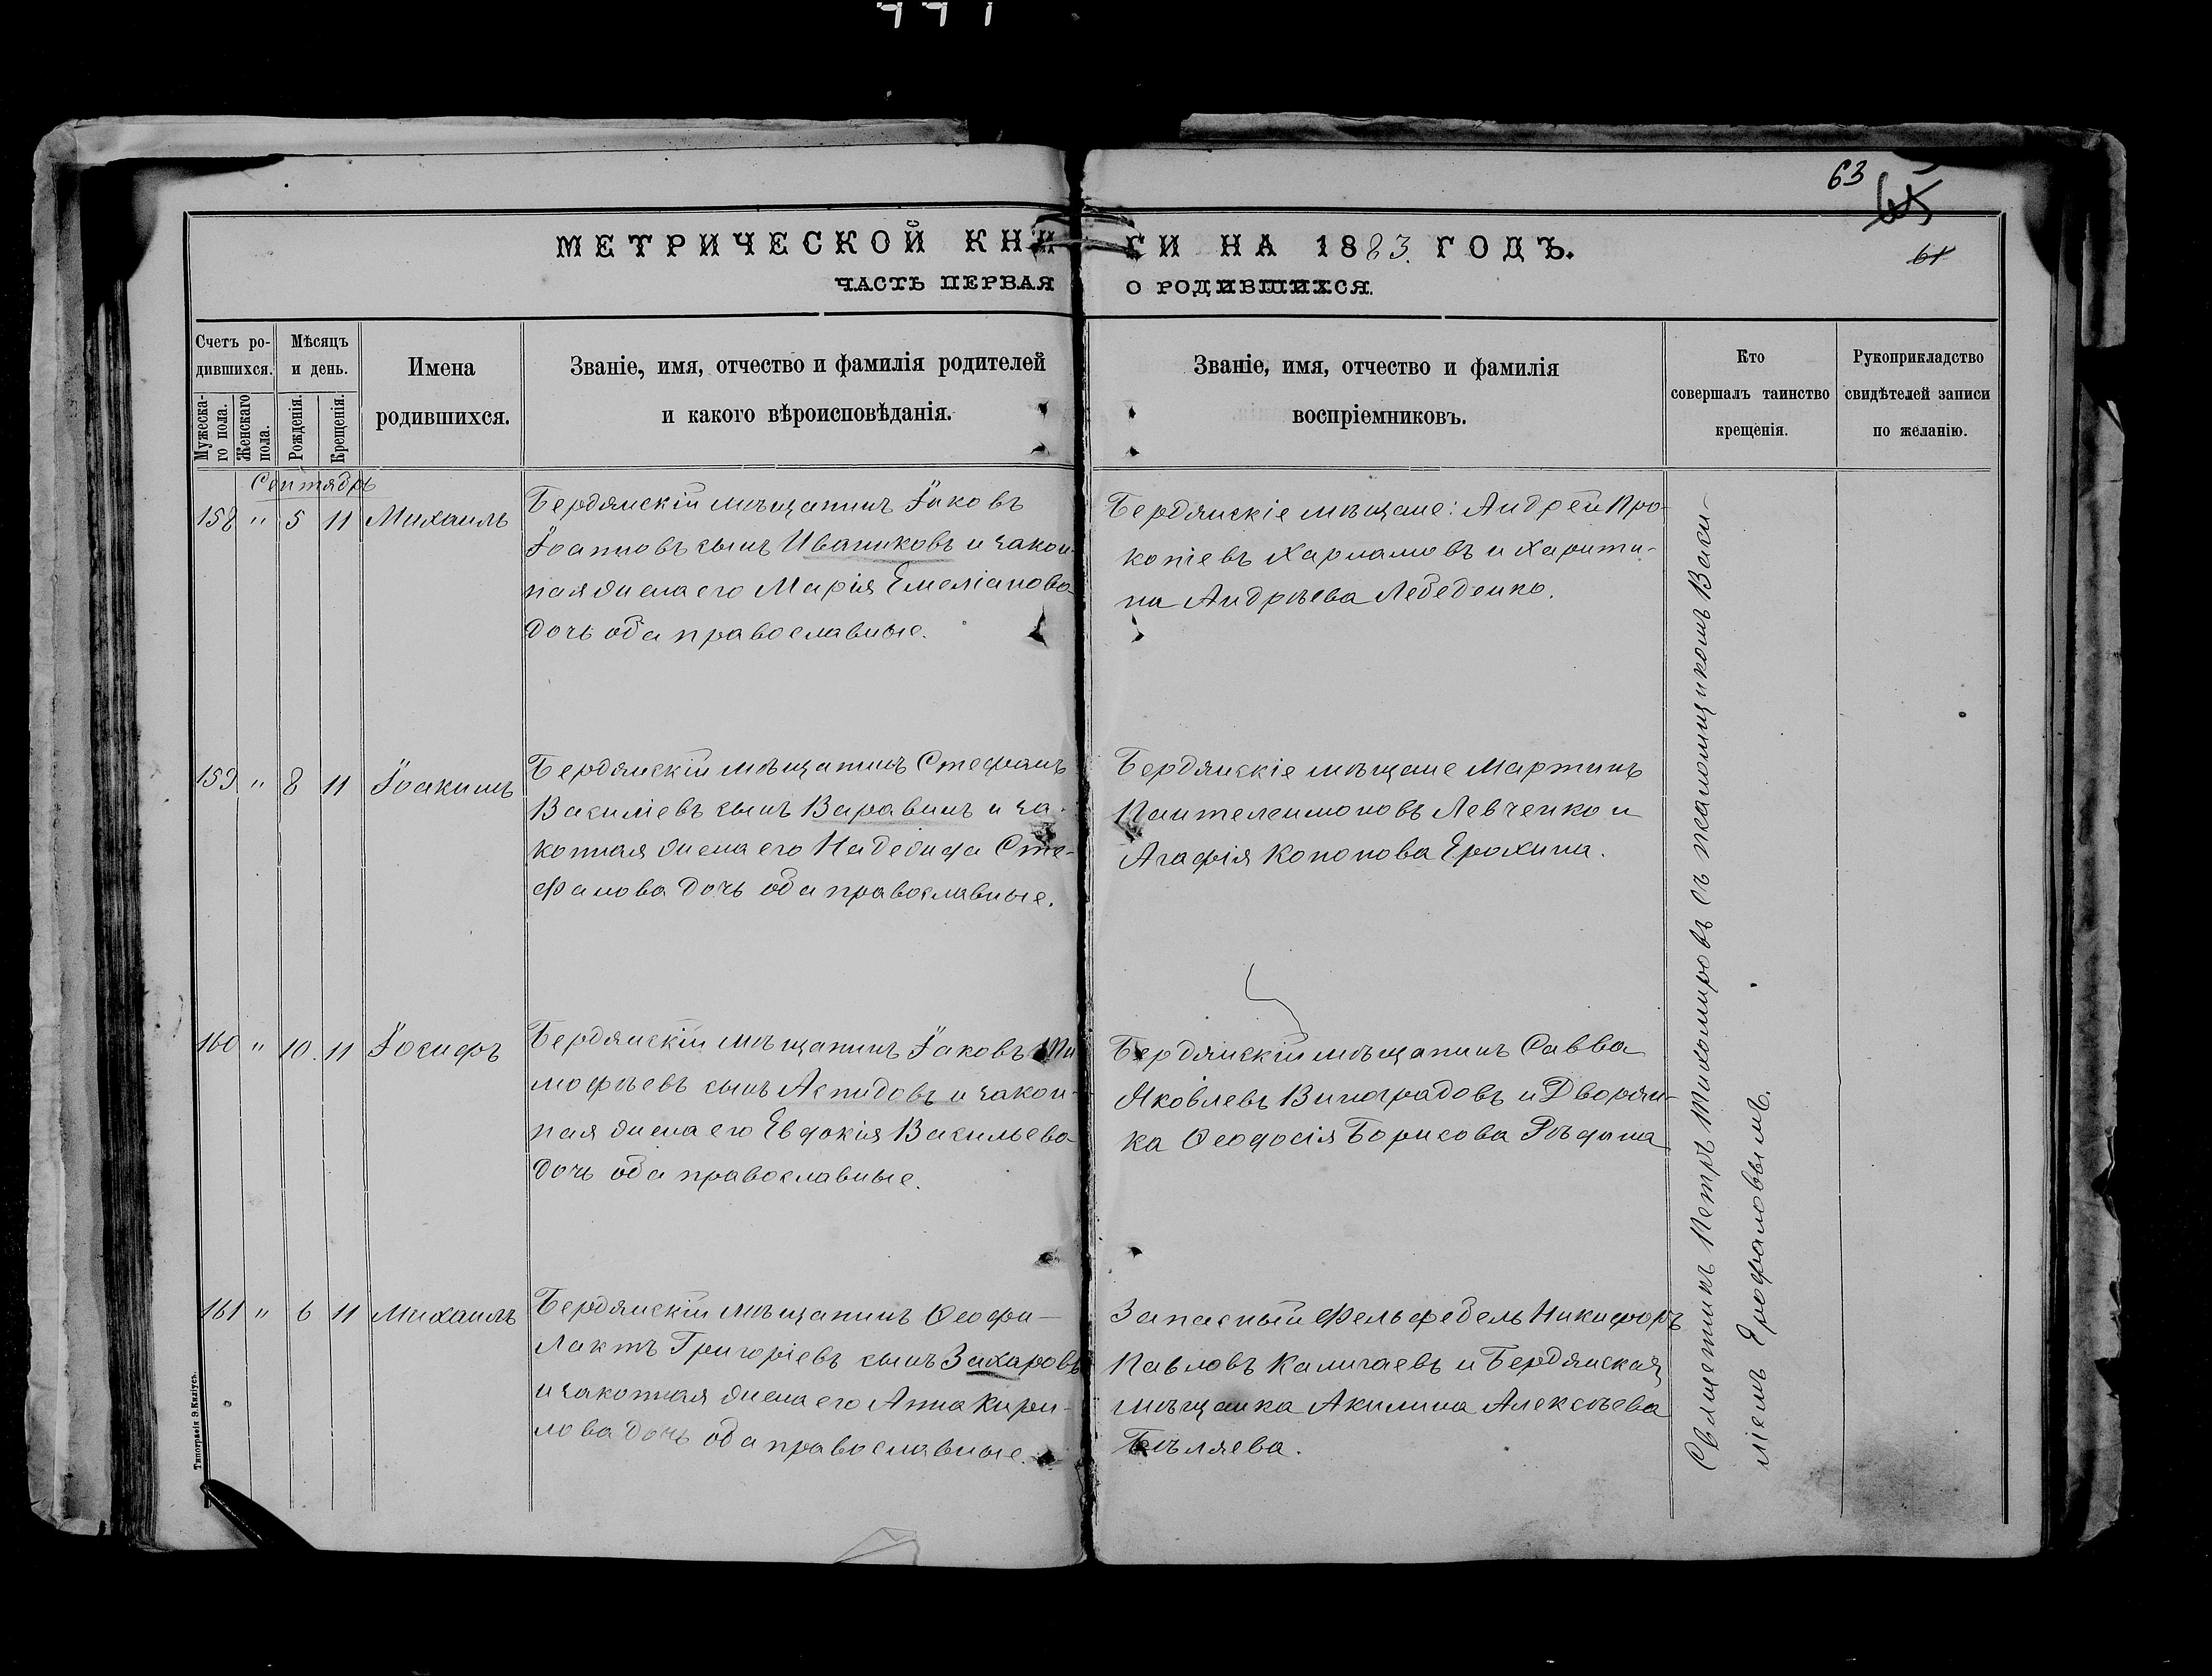 63
65
61
МЕТРИЧЕСКОЙ КНИГИ НА 1883. ГОДЪ.
ЧАСТЬ ПЕРВАЯ О РОДИВШИХСЯ.
Счетъ ро-
дившихся.
Мужеска-
го пола.
Женскаго
пола.
Мѣсяцъ
и день.
Рожденія.
Крещенія.
Имена
родившихся.
Званіе, имя, отчество и фамилія родителей
и какого вѣроисповѣданія.
Званіе, имя, отчество и фамилія
воспріемниковъ.
Кто
совершалъ таинство
крещенія.
Рукоприкладство
свидѣтелей записи
по желанію.
Сентябрь
158 " 5 11 Михаилъ
Бердянскій мѣщанинъ Іаковъ
Іоанновъ сынъ Иваниковъ и закон-
ная жена его Марія Емеліанова
дочь оба православные.
Бердянскіе мѣщане: Андрей Про-
копіевъ Харламовъ и Харити-
на Андрѣева Лебеденко.
159 " 8 11 Іоакимъ
Бердянскій мѣщанинъ Стефанъ
Василіевъ сынъ Варавинъ и за-
конная жена его Надежда Сте-
фанова дочь оба православные.
Бердянскіе мѣщане Мартинъ
Пантелеимоновъ Левченко и
Агафія Кононова Ерохина.
160 " 10. 11 Іосифъ
Бердянскій мѣщанинъ Іаковъ Ти
мофѣевъ сынъ Аспидовъ и закон-
ная жена его Евдокія Васильева
дочь оба православные.
Бердянскій мѣщанинъ Савва
Яковлевъ Виноградовъ и Дворян-
ка Ѳеодосія Борисова
161 " 6 11 Михаилъ
Бердянскій мѣщанинъ Ѳеофи-
лактъ Григоріевъ сынъ Захаровъ
и законная жена его Анна Кири-
лова дочь оба православные.
Запасный Фельдфебель Никифоръ
Павловъ Каличаевъ и Бердянская
мѣщанка Акилина Алексѣева
Бѣляева.
Священникъ Петръ Тихомировъ съ псаломщикомъ Васи-
ліемъ Ерофаловымъ.
Типографія Э. Килусъ.